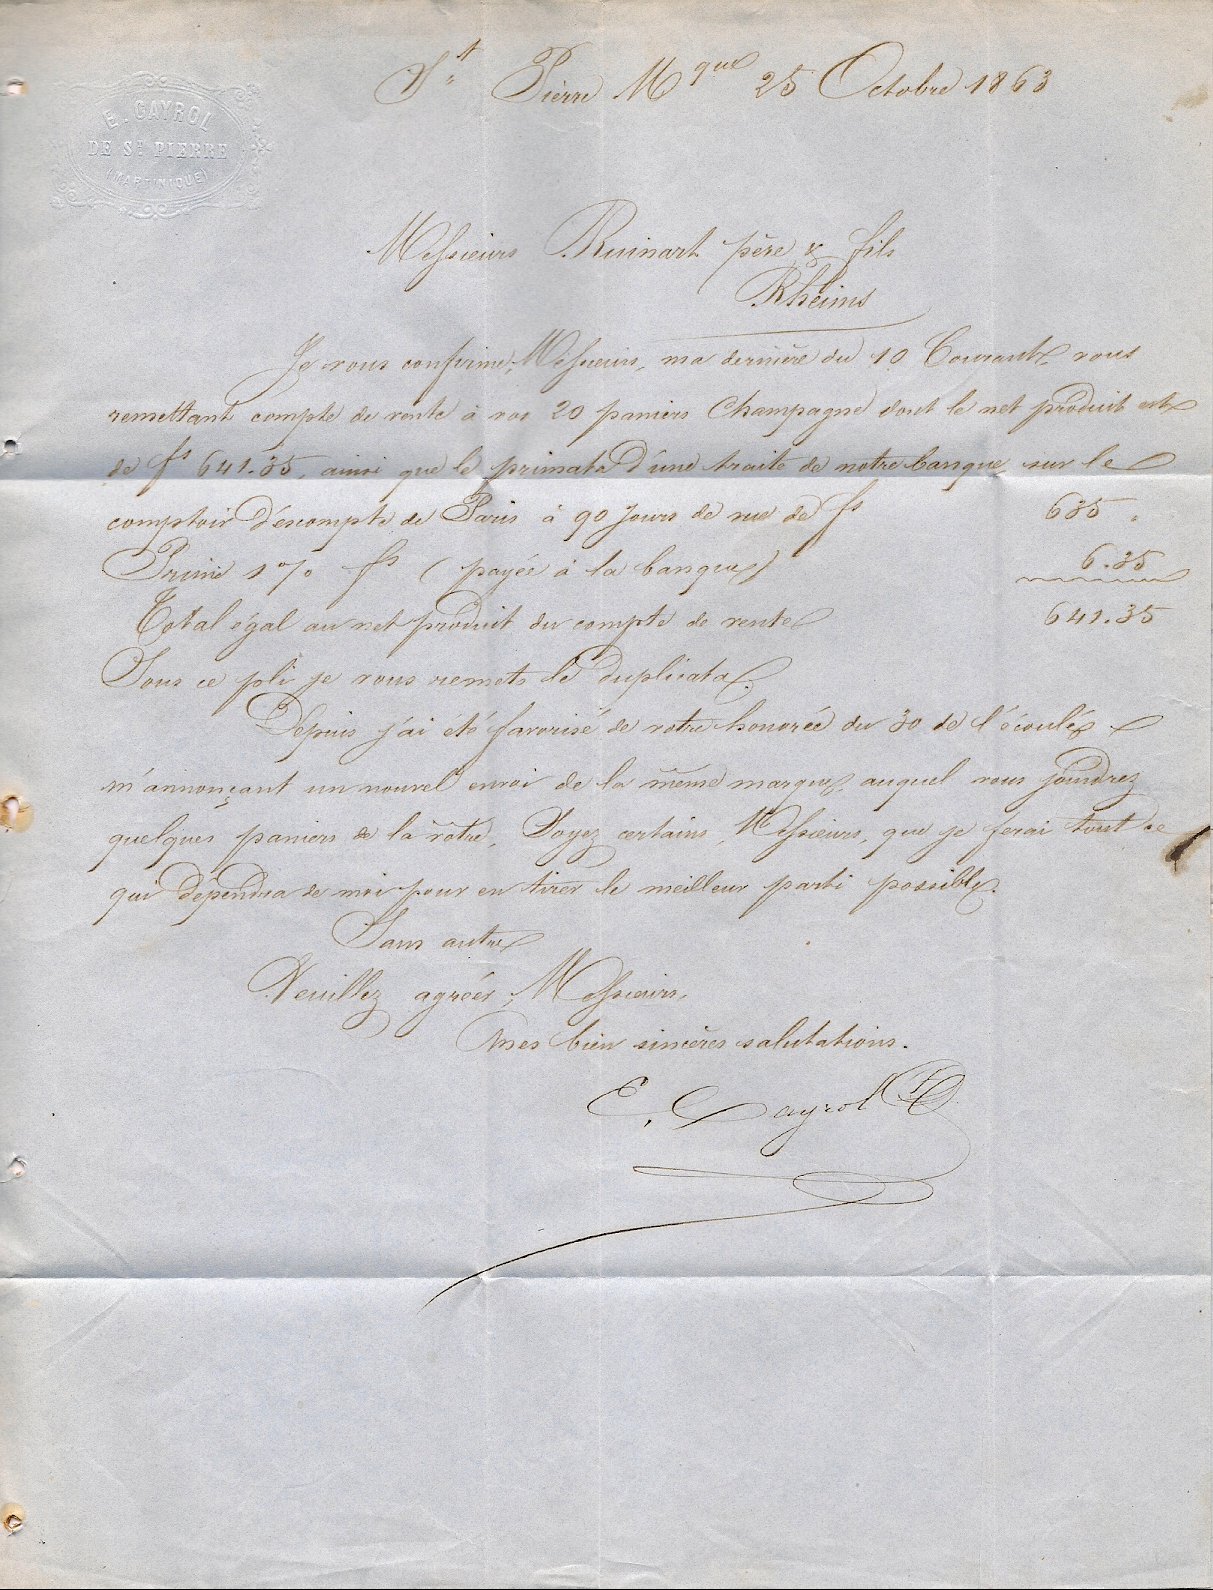 E. CAYROL
DE St. PIERRE
(MARTINIQUE)
St. Pierre Mque 25 Octobre 1863
Messieurs Ruinart père & fils
Rheims
Je vous confirme, Messieurs, ma dernière du 10 Courant, vous
remettant compte de vente à vos 20 paniers Champagne dont le net produit est
de fs 641.35, ainsi que le primata d'une traite de notre banque sur le
comptoir d'escompte de Paris à 90 jours de vue de fs 635 "
Prime 1 % fs (payée à la banque) 6.35
Total égal au net produit du compte de vente 641.35
Sous ce pli je vous remets le duplicata.
Depuis j'ai été favorisé de votre honorée du 30 de l'écoulé
m'annonçant un nouvel envoi de la même marque, auquel vous joindrez
quelques paniers de la vôtre. Soyez certains, Messieurs, que je ferai tout ce
qui dépendra de moi pour en tirer le meilleur parti possible.
Sans autre
Veuillez agréer, Messieurs,
mes bien sincères salutations.
E. Cayrol